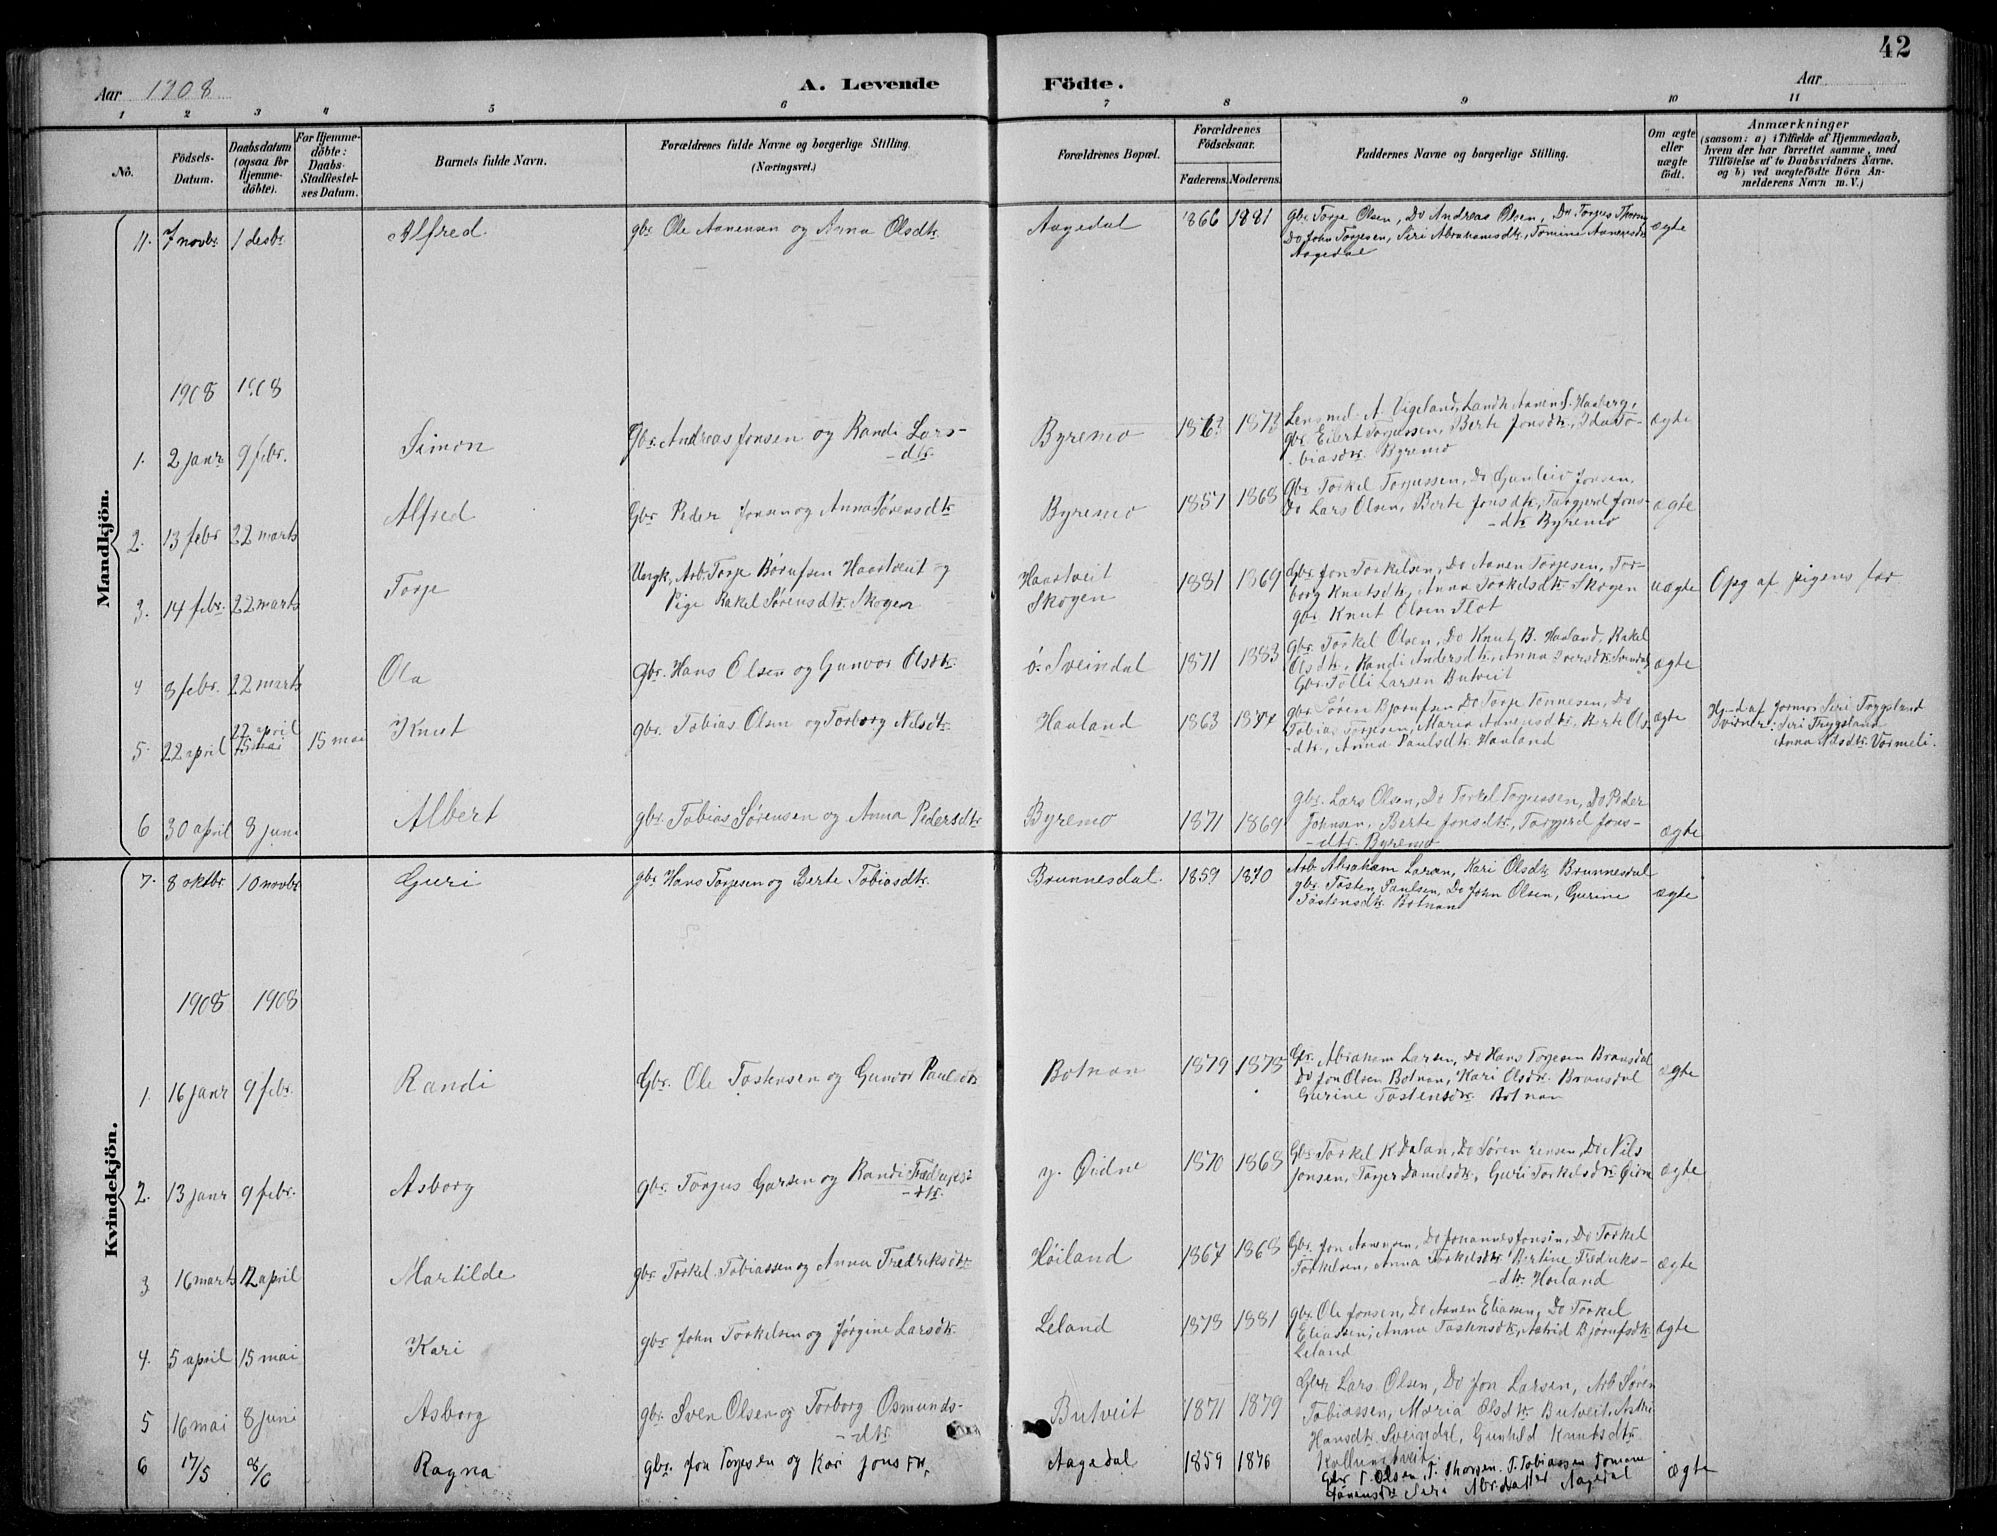 42
Aar 1908 A. Levende Födte. Aar
1 2 3 4 5 6 7 8 9 10 11
No.
Födsels-Datum.
Daabsdatum (ogsaa for Hjemmedöbte).
For Hjemmedöbte: Daabs-Stadfæstelses Datum.
Barnets fulde Navn.
Forældrenes fulde Navne og borgerlige Stilling. (Næringsvei.)
Forældrenes Bopæl.
Forældrenes Födselsaar.
Faderens. Moderens.
Faddernes Navne og borgerlige Stilling.
Om ægte eller uægte födt.
Anmærkninger
(saasom: a) i Tilfælde af Hjemmedaab, hvem der har forrettet samme, med Tilföielse af to Daabsvidners Navne, og b) ved uægtefödte Börn Anmelderens Navn m. V.)
Mandkjön.
11. 7 novbr 1 desbr Alfred gbr Ole Aanensen og Anna Olsdtr Aagedal 1866 1881 gbr Torje Olsen, Do Andreas Olsen, Do Torjus Thorsn
Do John Torjesen, Siri Abrahamsdtr, Tomine Aanensdtr ægte
Aagedal
1908 1908
1. 2 janr 9 febr. Simon Gbr. Andreas Jonsen og Randi Lars-
dtr. Byremo 1873 Lensmd A. Vigeland, Landh Aanen S. Haaberg,
gbr Eilert Torjussen, Berte Jonsdtr, Ida To- ægte
biasdtr Byremo
2. 13 febr 22 marts Alfred Gbr Peder Jonsen og Anna Sørensdtr Byremo 1857 1868 Gbr Torkel Torjussen, Do Gunleiv Jonsen,
Do Lars Olsen, Berte Jonsdtr, Torgjerd Jons- ægte
dtr Byremo
3. 14 febr. 22 marts Torje Ungk, Arb. Torje Børufsen Haartveit og
Pige Rakel Sørensdtr. Skogen Haartveit
Skogen 1881 1869 Gbr Jon Torkelsen, Do Aanen Torjesen, Tor-
borg Knutsdtr, Anna Torkelsdtr Skogen uægte Opg af pigens far
gbr Knut Olsen Flot
4 8 febr. 22 marts Ola gbr. Hans Olsen og Gunvor Olsdtr. ø. Sveindal 1871 1883 gbr. Torkel Olsen, Do Knut B. Haaland, Rakel
Olsdtr, Randi Andersdtr, Anna Iversdtr Sveindal ægte
Gbr Tolli Larsen Butveit
5. 22 april 22 april
15 mai 15 mai Knut gbr. Tobias Olsen og Torborg Nilsdtr Haaland 1863 1877 gbr Søren Bjornfsen Do Torje Tonnesen, Do
Tobias Torjesen, Maria Aanensdtr, Berte Ols- ægte Hj-d af jormor Siri Tryggsland
dtr, Anna Paulsdtr Haaland Vidner: Siri Trygsland
Anna Nilsdtr Vormeli.
6 30 april 8 juni Albert gbr. Tobias Sørensen og Anna Pedersdtr Byremo 1871 1869 gbr. Lars Olsen, Do Torkel Torjussen, Do Peder
Johnsen, Berte Jonsdtr, Torgjerd Jons- ægte
dtr. Byremo
Kvindekjön.
7. 8 oktbr 10 novbr Guri gbr Hans Torjesen og Berte Tobiasdtr. Brunnesdal. 1859 1870 Arb Abraham Larsen, Kari Olsdtr Brunnesdal
gbr Tosten Paulsen, Do John Olsen, Gurine ægte
Tostensdtr Botnan
1908 1908
1. 16 janr 9 febr. Randi Gbr. Ole Tostensen og Gunvor Paulsdtr Botnan 1879 1878 Gbr. Abraham Larsen, Do Hans Torjesen Bransdal
Do Jon Olsen Botnan, Kari Olsdtr. Bransdal ægte
Gurine Tostensdtr Botnan
2. 13 janr 9 febr. Asborg gbr. Torjus Garsen og Randi Fredriks-
dtr y. Øidne 1870 1868 Gbr Torkel K Dalan, Do Søren Jensen, Do Nils
Jonsen, Torjer Danielsdtr, Guri Torkelsdtr Øidne ægte
3 16 marts 12 april Martilde gbr Torkel Tobiassen og Anna Fredriksdtr Høiland 1867 1868 Gbr. Jon Aanensen, Do Johannes Jonsen, Do Torkel
Torkelsen, Anna Torkelsdtr Bertine Fredriks- ægte
dtr. Høiland
4. 5 april 15 mai Kari gbr John Torkelsen og Jørgine Larsdtr. Leland 1878 1881 gbr. Ole Jonsen, Do Aanen Eliassen, Do Torkel
Eliassen, Anna Tostensdtr, Astrid Bjørufsdtr ægte
Leland
5 16 mai 8 juni Asborg gbr. Sven Olsen og Torborg Osmunds-
dtr Butveit 1871 1879 Gbr Lars Olsen, Do Jon Larsen, Arb Søren
Tobiassen, Maria Olsdtr Butveit,
Hansdtr Sveindal, Gunhild Knutsdtr
6 17/5 8/6 Ragna gbr. Jon Torjesen og Kari Jonsdtr, Aagedal 1859 1876 Gbr T. Olsen, T. Thorsen, T. Tobiassen Tomine
Aanensdtr Siri Abr.datter Aagedal ægte